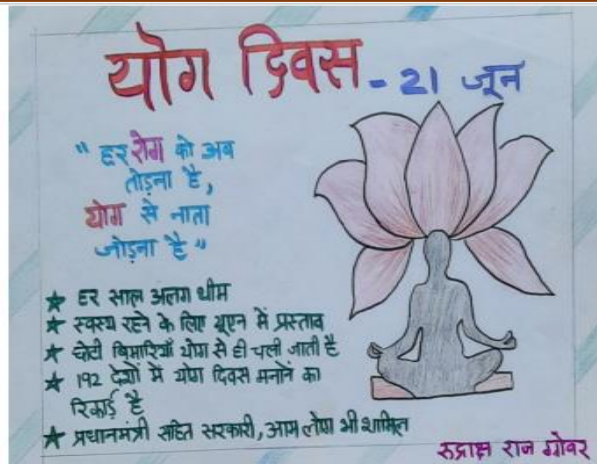 योग दिवस - 21 जून
" हर रोग को अब
तोड़ना है,
योग से नाता
जोड़ना है "
★ हर साल अलग थीम
★ स्वस्थ रहने के लिए यूएन में प्रस्ताव
★ छोटी बिमारियाँ योग से ही चली जाती है
★ 192 देशों में योग दिवस मनाने का
रिकार्ड है
★ प्रधानमंत्री सहित सरकारी, आम लोग भी शामिल
रुद्राक्ष राज ग्रोवर